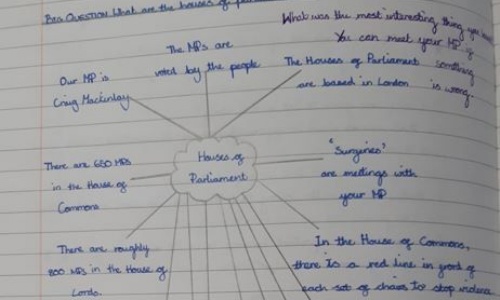 Big Question: What are the houses of
What was the most interesting thing you
You can meet your MP if
something
is wrong.
The MPs are
voted by the people
The Houses of Parliament
are based in London
Our MP is
Craig Mackinlay
Houses of
Parliament
There are 650 MPs
in the House of
Commons
"Surgeries"
are meetings with
your MP
There are roughly
800 MPs in the House of
Lords.
In the House of Commons,
there is a red line in front of
each set of chairs to stop violence